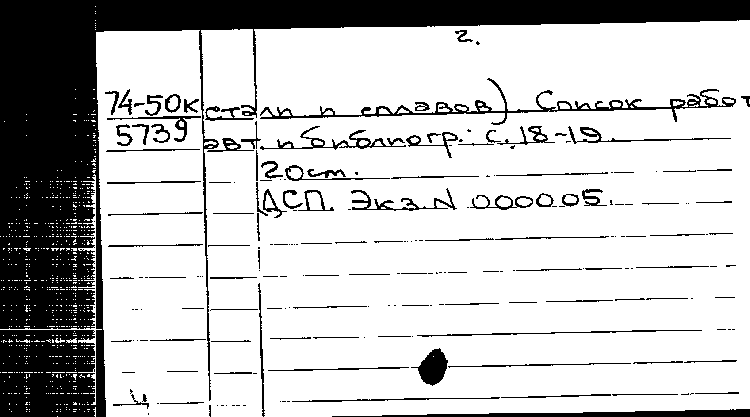 2.
74-50к стали и сплавов). Список работ
5739 авт. и библиогр.: с. 18-19.
20 см.
ДСП. Экз. N 000005.
ц